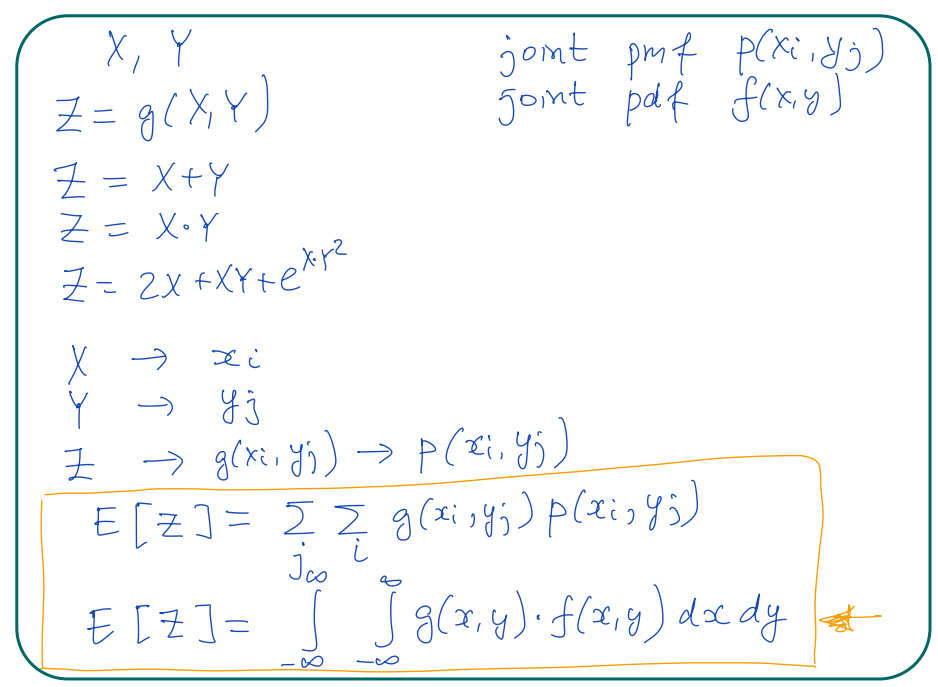 X, Y
joint pmf p(xi, yj)
Z = g(X,Y)
joint pdf f(x,y)
Z = X+Y
Z = X·Y
Z = 2X+XY+e^{X·Y^2}
X → xi
Y → yj
Z → g(xi, yj) → p(xi, yj)
E[Z] = ∑_j ∑_i g(xi, yj) p(xi, yj)
E[Z] = ∫_{-∞}^{∞} ∫_{-∞}^{∞} g(x,y)·f(x,y) dx dy